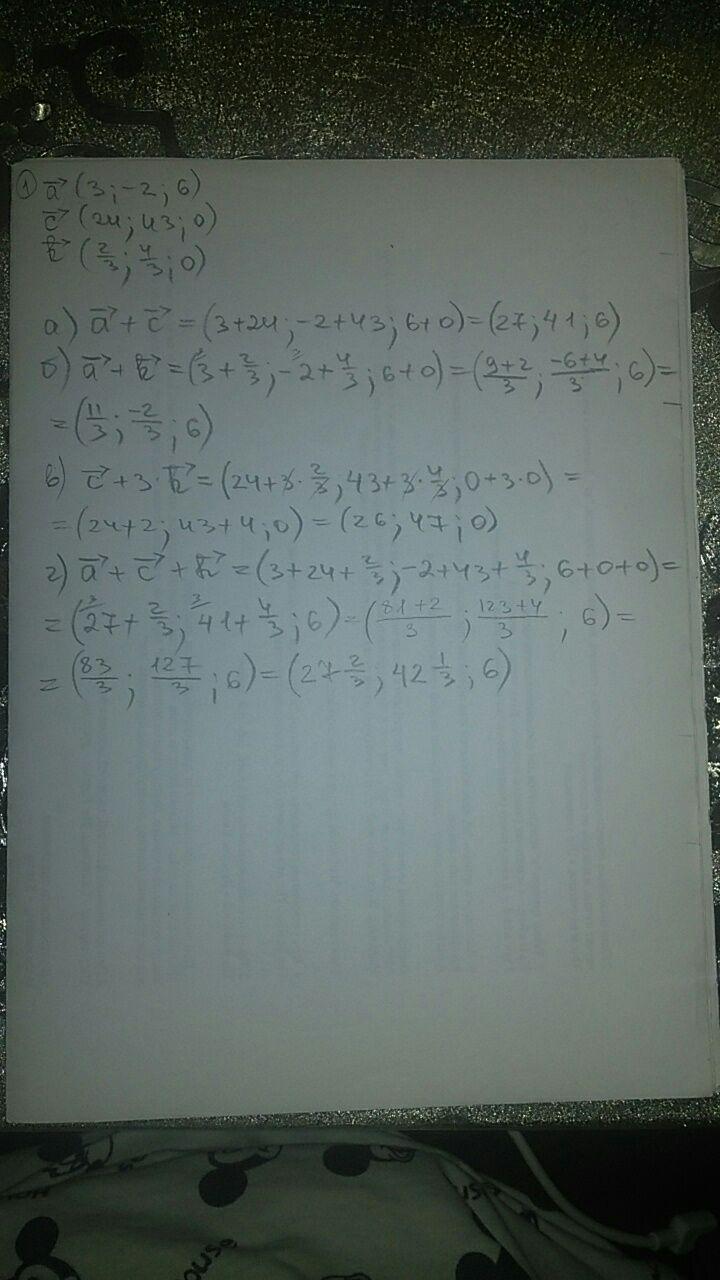 ① a⃗ (3; -2; 6)
c⃗ (24; 43; 0)
k⃗ (2/3; 4/3; 0)
а) a⃗ + c⃗ = (3+24; -2+43; 6+0) = (27; 41; 6)
б) a⃗ + k⃗ = (3+2/3; -2+4/3; 6+0) = ((9+2)/3; (-6+4)/3; 6) =
= (11/3; -2/3; 6)
в) c⃗ + 3·k⃗ = (24+3·2/3; 43+3·4/3; 0+3·0) =
= (24+2; 43+4; 0) = (26; 47; 0)
г) a⃗ + c⃗ + k⃗ = (3+24+2/3; -2+43+4/3; 6+0+0) =
= (27+2/3; 41+4/3; 6) = ((81+2)/3; (123+4)/3; 6) =
= (83/3; 127/3; 6) = (27 2/3; 42 1/3; 6)
ouse